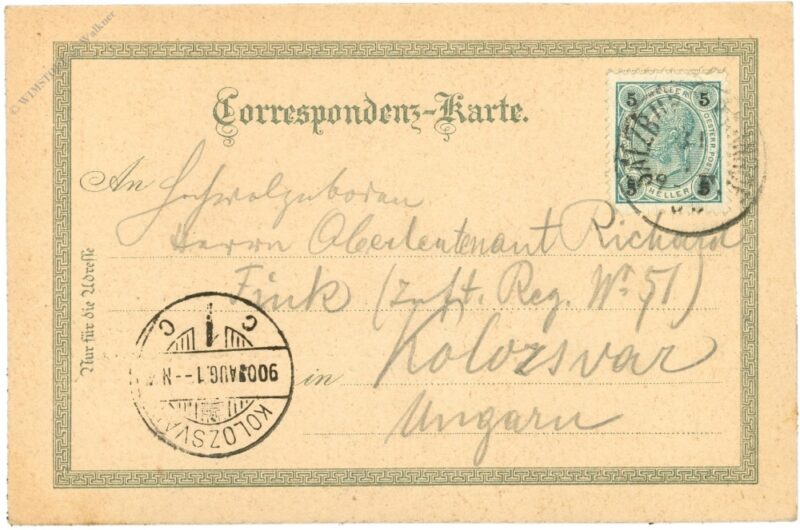 © WIMSTI Walkner
Correspondenz-Karte.
5 HELLER 5
OESTERR. POST
5 HELLER 5
SALZBURG
An Hochwolgeboren
Herrn Oberleutenant Richard
Fink (Inft. Reg. № 51)
in Kolozsvar
Ungarn
Nur für die Adresse
C 1 C
900 AUG. 1 - N
KOLOZSVA